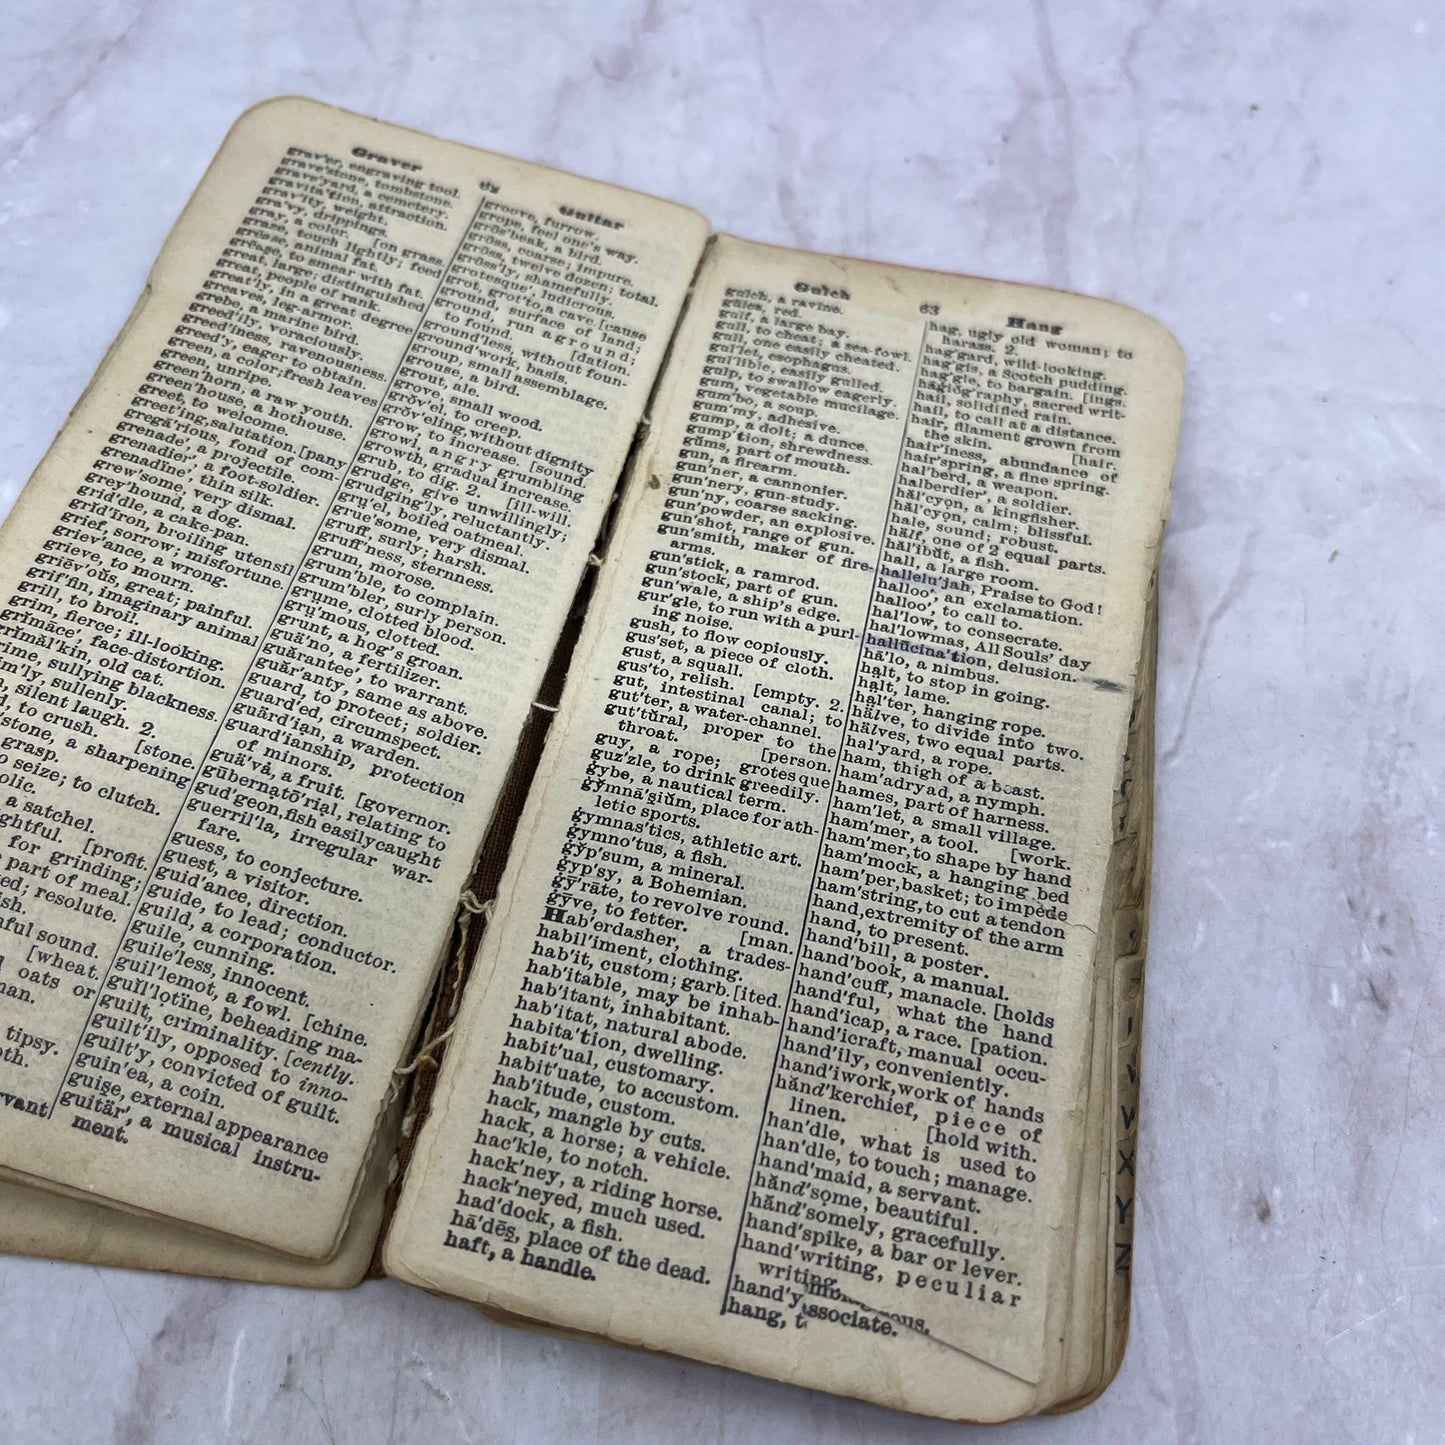 Graver 62 Guitar
grav'er, engraving tool.
grave'stone, tombstone.
grave'yard, a cemetery.
gravita'tion, attraction.
grav'ity, weight.
gra'vy, drippings.
gray, a color. [on grass.
graze, touch lightly; feed
grēase, animal fat.
grēase, to smear with fat.
great, large; distinguished
great, people of rank.
great'ly, in a great degree
greaves, leg-armor.
grebe, a marine bird.
greed'ily, voraciously.
greed'iness, ravenousness.
greed'y, eager to obtain.
green, a color; fresh leaves
green, unripe.
green'horn, a raw youth.
green'house, a hothouse.
greet, to welcome.
greet'ing, salutation. [pany
gregā'rious, fond of com-
grenade', a projectile.
grenadier', a foot-soldier.
grenadïne', thin silk.
grew'some, very dismal.
grey'hound, a dog.
grid'dle, a cake-pan.
grid'iron, broiling utensil
grief, sorrow; misfortune.
griev'ance, a wrong.
grieve, to mourn.
griēv'oŭs, great; painful.
grif'fin, imaginary animal
grill, to broil.
grim, fierce; ill-looking.
grimāce', face-distortion.
grimăl'kin, old cat.
rime, sullying blackness.
im'ly, sullenly.
silent laugh. 2.
to crush. [stone.
'stone, a sharpening
grasp.
o seize; to clutch.
olic.
a satchel.
ghtful. [profit.
for grinding;
part of meal.
ed; resolute.
ish.
nful sound.
[wheat.
oats or
nan.
tipsy.
oth.
rvant
groove, furrow.
grope, feel one's way.
grōs'beak, a bird.
grōss, coarse; impure.
grōss, twelve dozen; total.
grōss'ly, shamefully.
grotesque', ludicrous.
grot, grot'to, a cave. [cause
ground, surface of land;
ground, run aground;
to found. [dation.
ground'less, without foun-
ground'work, basis.
group, small assemblage.
grouse, a bird.
grout, ale.
grove, small wood.
grŏv'el, to creep.
grŏv'eling, without dignity
grow, to increase. [sound.
growl, angry grumbling
growth, gradual increase.
grub, to dig. 2. [ill-will.
grudge, give unwillingly;
grudging'ly, reluctantly.
gru'el, boiled oatmeal.
grue'some, very dismal.
gruff, surly; harsh.
gruff'ness, sternness.
grum, morose.
grum'ble, to complain.
grum'bler, surly person.
grume, clotted blood.
gru'mous, clotted.
grunt, a hog's groan.
guä'no, a fertilizer.
guărantee', to warrant.
guăr'anty, same as above.
guard, to protect; soldier.
guard'ed, circumspect.
guärd'ian, a warden.
guard'ianship, protection
of minors.
guä'va, a fruit. [governor.
gūbernatō'rial, relating to
gud'geon, fish easily caught
guerril'la, irregular war-
fare.
guess, to conjecture.
guest, a visitor.
guid'ance, direction.
guide, to lead; conductor.
guild, a corporation.
guile, cunning.
guile'less, innocent.
guil'lemot, a fowl. [chine.
guïl'lotïne, beheading ma-
guilt, criminality. [cently.
guilt'ily, opposed to inno-
guilt'y, convicted of guilt.
guin'ea, a coin.
guise, external appearance
guitär', a musical instru-
ment.
Gulch 63 Hang
gulch, a ravine.
gules, red.
gulf, a large bay.
gull, to cheat; a sea-fowl.
gull, one easily cheated.
gul'let, esophagus.
gul'lible, easily gulled.
gulp, to swallow eagerly.
gum, vegetable mucilage.
gum'bo, a soup.
gum'my, adhesive.
gump, a dolt; a dunce.
gump'tion, shrewdness.
gŭms, part of mouth.
gun, a firearm.
gun'ner, a cannonier.
gun'nery, gun-study.
gun'ny, coarse sacking.
gun'powder, an explosive.
gun'shot, range of gun.
gun'smith, maker of fire-
arms.
gun'stick, a ramrod.
gun'stock, part of gun.
gun'wale, a ship's edge.
gur'gle, to run with a purl-
ing noise.
gush, to flow copiously.
gus'set, a piece of cloth.
gust, a squall.
gus'to, relish. [empty. 2.
gut, intestinal canal; to
gut'ter, a water-channel.
gut'tŭral, proper to the
throat. [person.
guy, a rope; grotesque
guz'zle, to drink greedily.
gybe, a nautical term.
ġy̆mnā'sĭŭm, place for ath-
letic sports.
ġymnas'tics, athletic art.
ġymno'tus, a fish.
ġy̆p'sum, a mineral.
ġyp'sy, a Bohemian.
ġȳ'rāte, to revolve round.
ġȳve, to fetter. [man.
Hab'erdasher, a trades-
habil'iment, clothing.
hab'it, custom; garb. [ited.
hab'itable, may be inhab-
hab'itant, inhabitant.
hab'itat, natural abode.
habita'tion, dwelling.
habit'ual, customary.
habit'uate, to accustom.
hab'itude, custom.
hack, mangle by cuts.
hack, a horse; a vehicle.
hac'kle, to notch.
hack'ney, a riding horse.
hack'neyed, much used.
had'dock, a fish.
hā'dēs, place of the dead.
haft, a handle.
hag, ugly old woman; to
harass. 2.
hag'gard, wild-looking.
hag'gis, a Scotch pudding.
hag'gle, to bargain. [ings.
hāgiŏg'raphy, sacred writ-
hail, solidified rain.
hail, to call at a distance.
hair, filament grown from
the skin. [hair.
hair'iness, abundance of
hair'spring, a fine spring.
hal'berd, a weapon.
halberdier', a soldier.
hăl'cyon, a kingfisher.
hăl'cyon, calm; blissful.
hale, sound; robust.
hälf, one of 2 equal parts.
hăl'ibŭt, a fish.
hall, a large room.
hallelu'jah, Praise to God!
halloo', an exclamation.
halloo', to call to.
hal'low, to consecrate.
hal'lowmas, All Souls' day
hallūcina'tion, delusion.
hā'lo, a nimbus.
halt, to stop in going.
halt, lame.
hal'ter, hanging rope.
hälve, to divide into two.
hälves, two equal parts.
hal'yard, a rope.
ham, thigh of a beast.
ham'adryad, a nymph.
hames, part of harness.
ham'let, a small village.
ham'mer, a tool. [work.
ham'mer, to shape by hand
ham'mock, a hanging bed
ham'per, basket; to impede
ham'string, to cut a tendon
hand, extremity of the arm
hand, to present.
hand'bill, a poster.
hand'book, a manual.
hand'cuff, manacle. [holds
hand'ful, what the hand
hand'icap, a race. [pation.
hand'icraft, manual occu-
hand'ily, conveniently.
hand'iwork, work of hands
hănd'kerchief, piece of
linen. [hold with.
han'dle, what is used to
han'dle, to touch; manage.
hand'maid, a servant.
hănd'some, beautiful.
hănd'somely, gracefully.
hand'spike, a bar or lever.
hand'writing, peculiar
writing.
hand'y
hang, t ssociate.
X
Y
Z